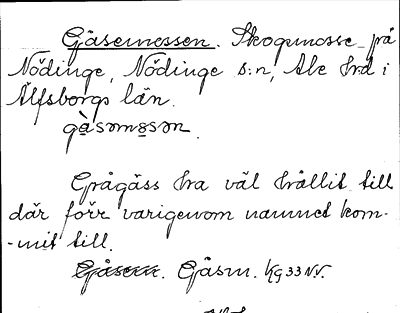 Gåsemossen. Skogsmosse på
Nödinge, Nödinge s:n, Ale hrd i
Älfsborgs län.
gå̀səmɷsən.
Grågäss ha väl hållit till
där förr varigenom namnet kom-
-mit till.
Gåsem. Gåsm. Kg 33 N.V.